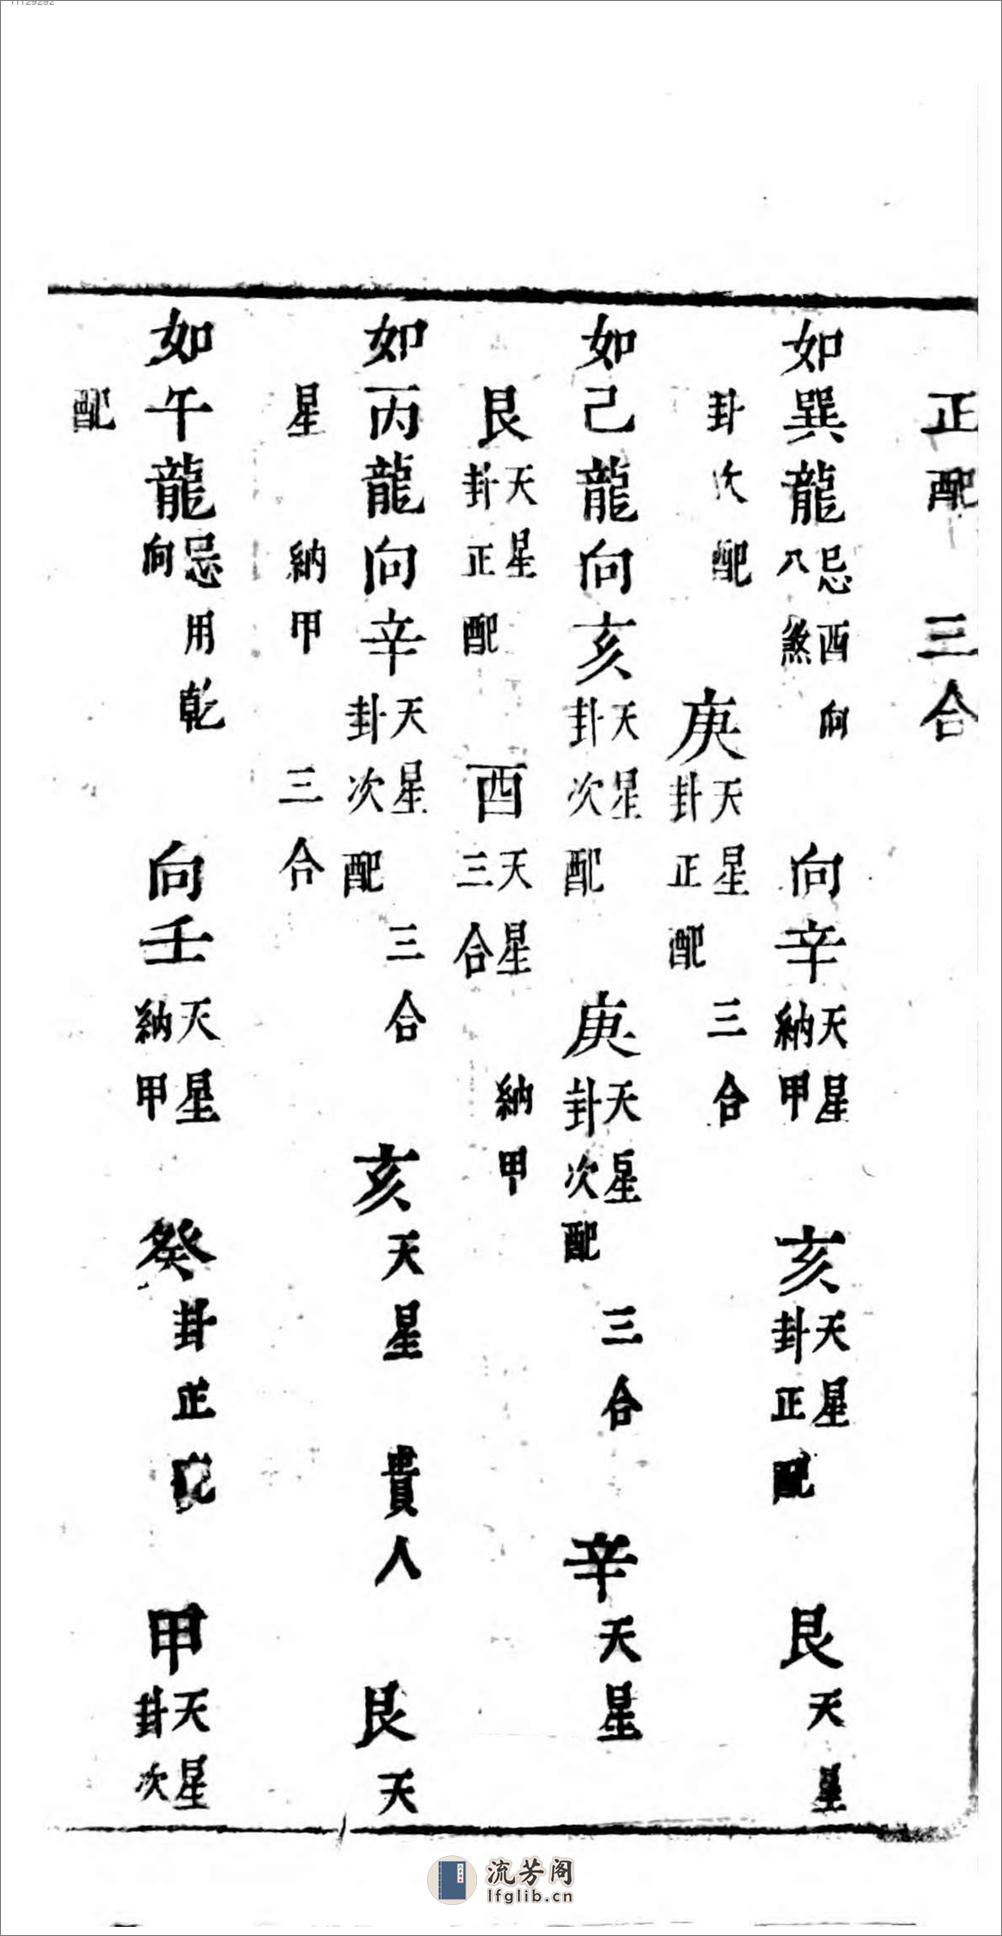 11129292
正配 三合
如巽龍忌酉向八煞 向辛天星納甲 亥天星卦正配 艮天星
卦次配 庚天星卦正配 三合
如己龍向亥天星卦次配 庚天星卦次配 三合 辛天星
艮天星卦正配 酉天星三合 納甲
如丙龍向辛天星卦次配 三合 亥天星 貴人 艮天
星 納甲 三合
如午龍忌用乾向 向壬天星納甲 癸卦正配 甲天星卦次
配
流芳阁
lfglib.cn